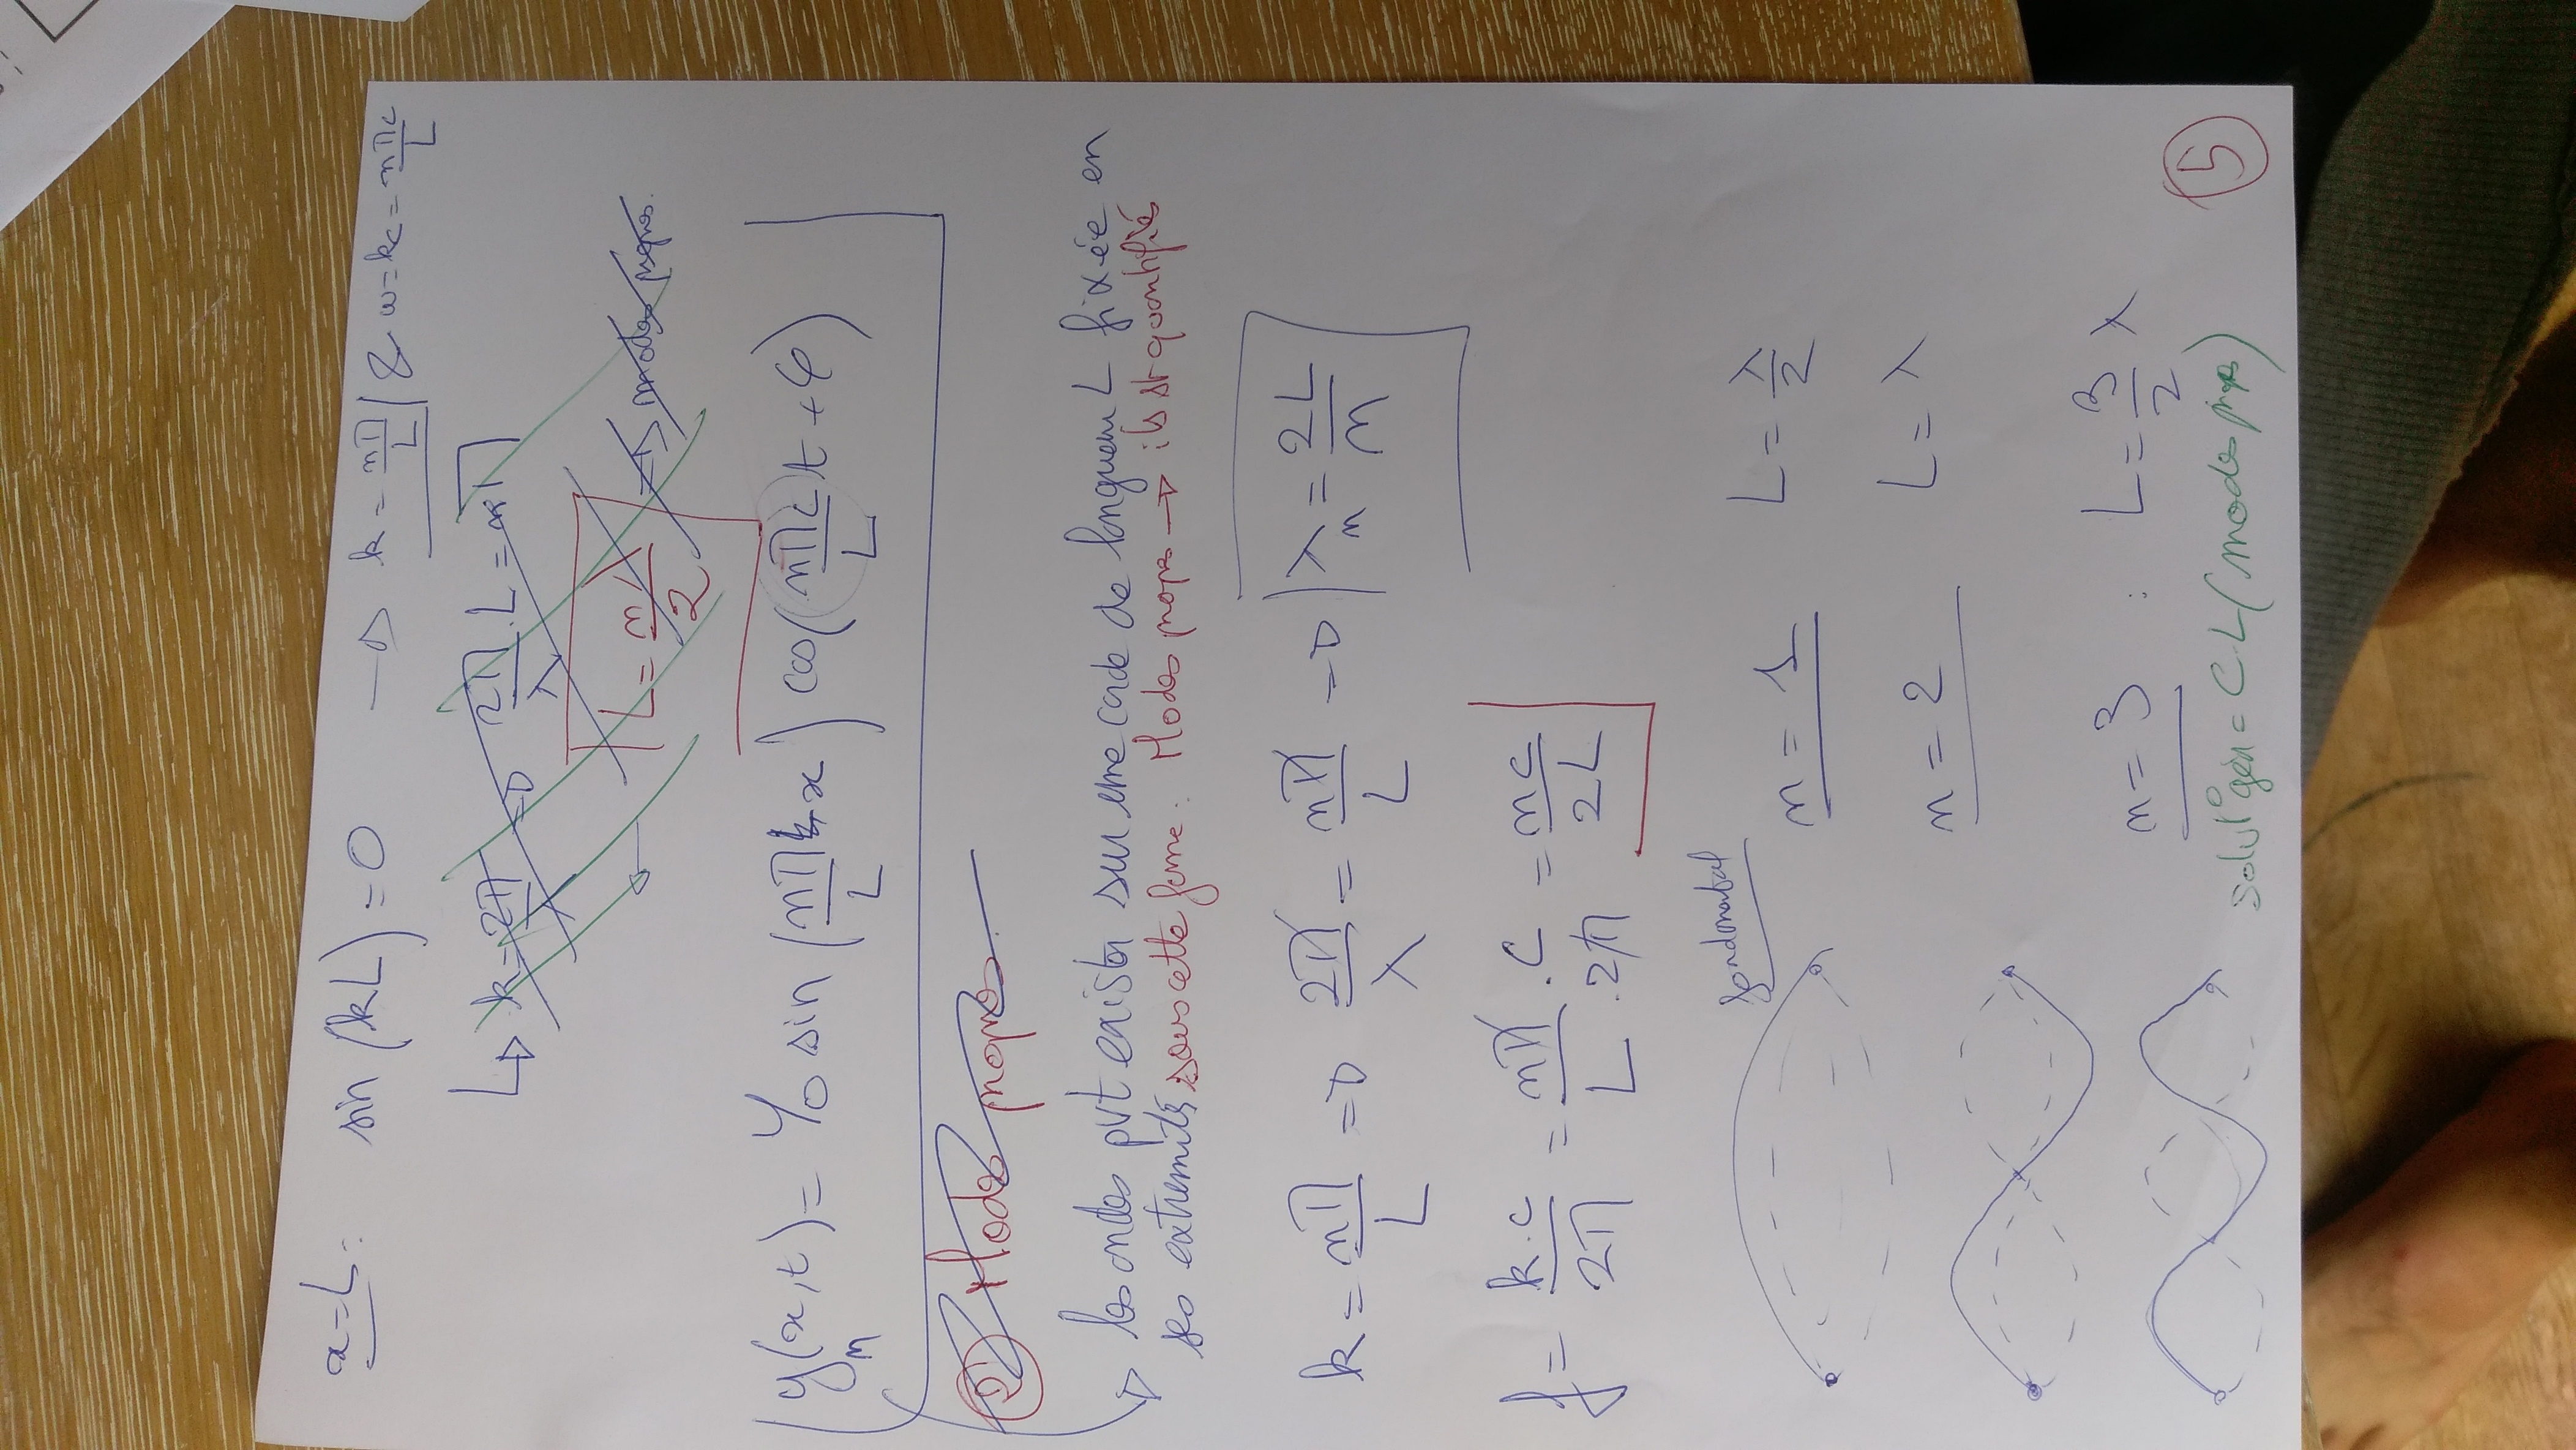 x=L: sin(kL)=0 → k=nπ/L & ω=kc=nπc/L
↳ k=2π/λ ⇒ 2π/λ.L=nπ
L=nλ/2 → modes propres.
yn(x,t)=Y0 sin(nπ/L x) cos(nπc/L t+φ)
② Modes propres
→ les ondes pvt exister sur une corde de longueur L fixée en
ses extremités sous cette forme: Modes propr → ils st quantifiés
k=nπ/L ⇒ 2π/λ=nπ/L ⇒ λn=2L/n
f=k.c/2π=nπ.c/L.2π=nc/2L
fondamental
n=1 L=λ/2
n=2 L=λ
n=3 : L=3/2 λ
solut° gén=CL(modes prop)
5